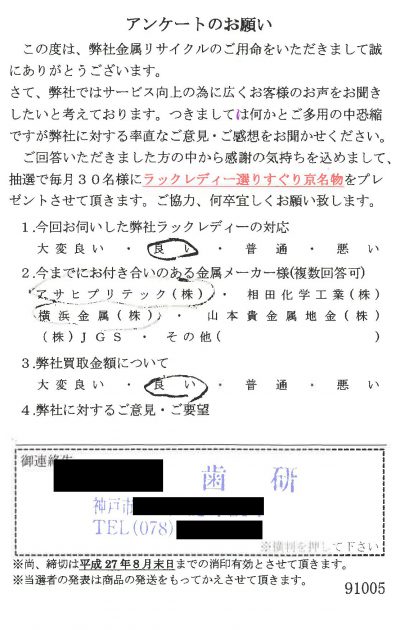 アンケートのお願い
この度は、弊社金属リサイクルのご用命をいただきまして誠
にありがとうございます。
さて、弊社ではサービス向上の為に広くお客様のお声をお聞き
したいと考えております。つきましては何かとご多用の中恐縮
ですが弊社に対する率直なご意見・ご感想をお聞かせください。
ご回答いただきました方の中から感謝の気持ちを込めまして、
抽選で毎月30名様にラックレディー選りすぐり京名物をプレ
ゼントさせて頂きます。ご協力、何卒宜しくお願い致します。
1.今回お伺いした弊社ラックレディーの対応
大変良い ・ 良い ・ 普通 ・ 悪い
2.今までにお付き合いのある金属メーカー様(複数回答可)
アサヒプリテック(株) ・ 相田化学工業(株)
横浜金属(株) ・ 山本貴金属地金(株)
(株)JGS ・ その他( )
3.弊社買取金額について
大変良い ・ 良い ・ 普通 ・ 悪い
4.弊社に対するご意見・ご要望
御連絡先
歯研
神戸市
TEL(078)
※横判を押して下さい
※尚、締切は平成27年8月末日までの消印有効とさせて頂きます。
※当選者の発表は商品の発送をもってかえさせて頂きます。
91005